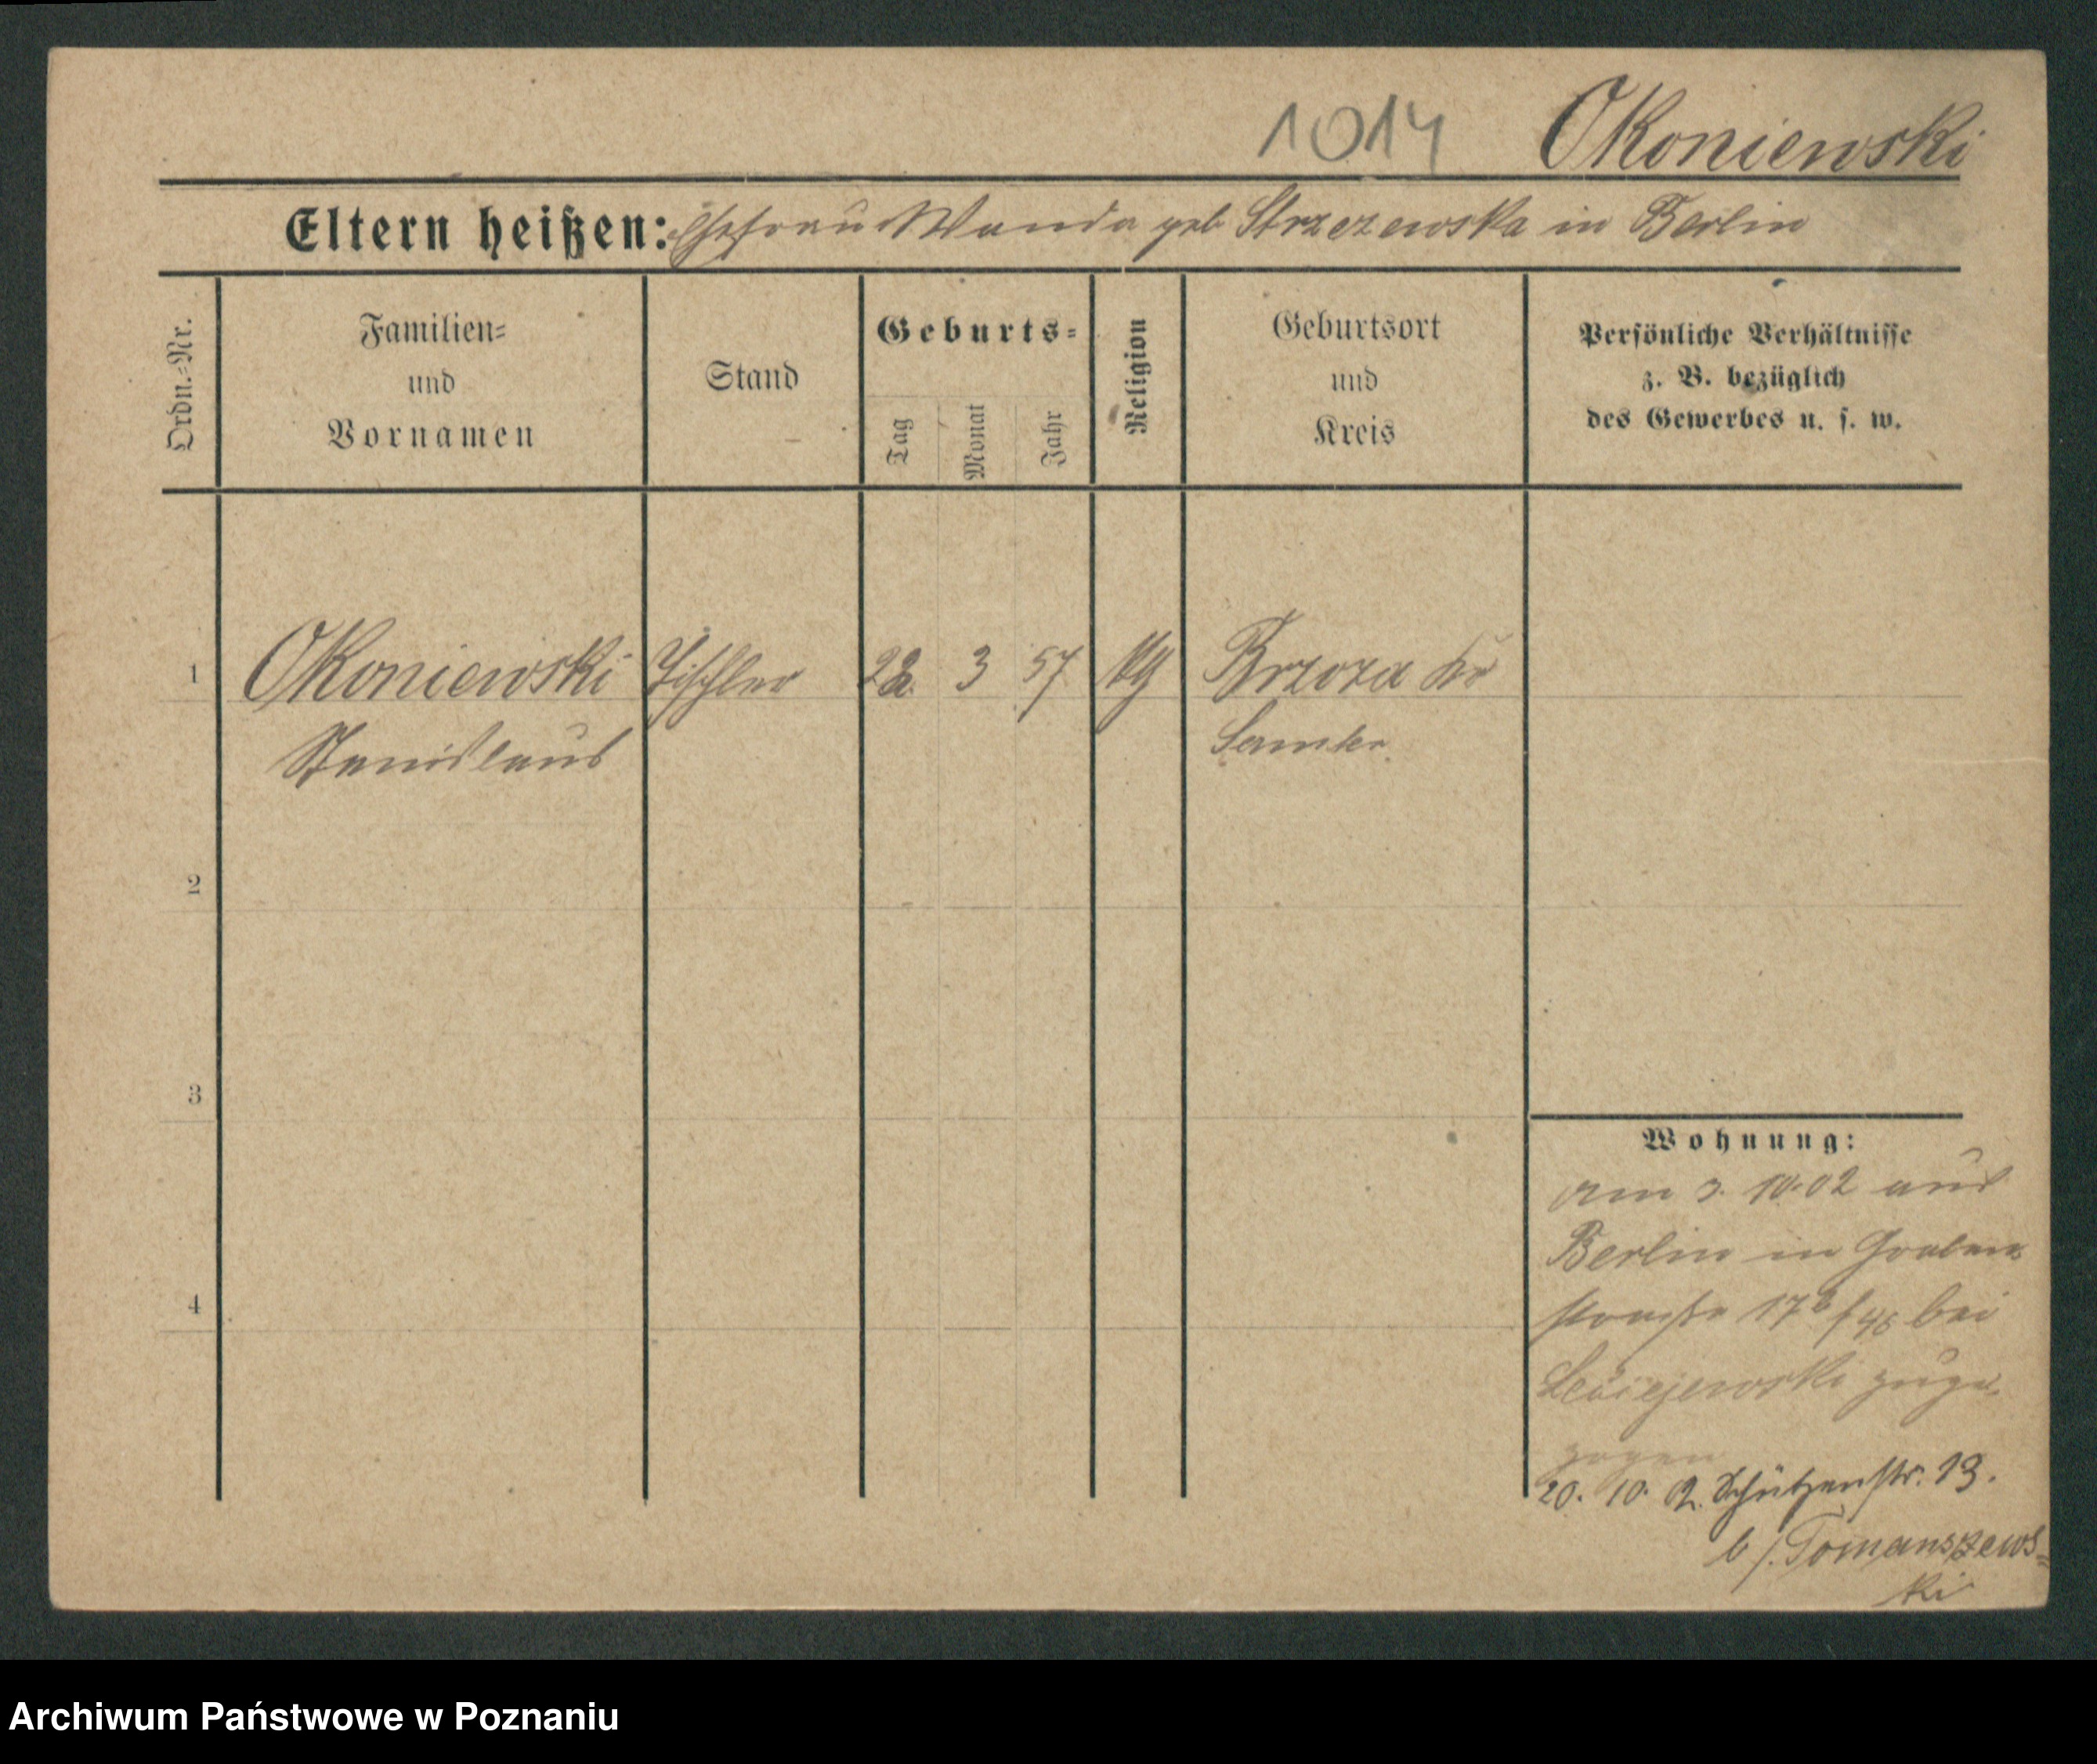 1014 Okoniewski
Eltern heißen: Ehefrau Wanda geb Strzezewska in Berlin
Ordn.=Nr.
Familien=
und
Vornamen
Stand
Geburts=
Tag
Monat
Jahr
Religion
Geburtsort
und
Kreis
Persönliche Verhältnisse
z. B. bezüglich
des Gewerbes u. s. w.
1 Okoniewski Tischler 22 3 57 Brzoza Kr
Stanislaus Samter
2
3
4
Wohnung:
am 3. 10.02 aus
Berlin in Graben
straße 17 bei
zuge-
zogen
20. 10. 2. Schützenstr. 13.
b/. Tomanszews=
ki
Archiwum Państwowe w Poznaniu